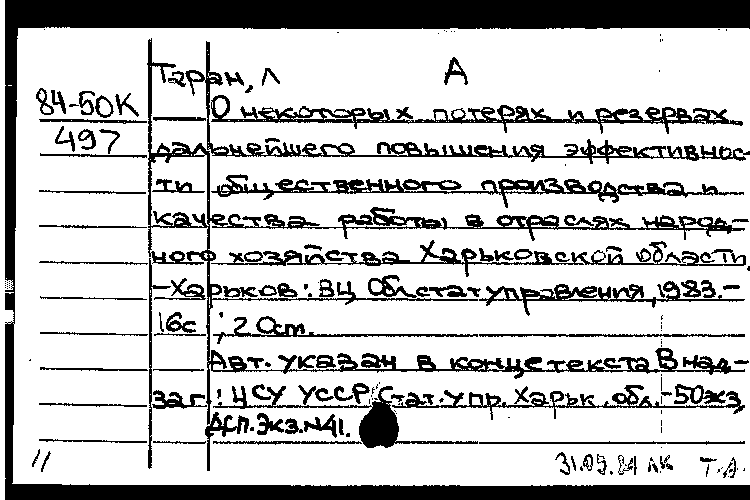 Таран, Л А
84-50К О некоторых потерях и резервах
497 дальнейшего повышения эффективнос-
ти общественного производства и
качества работы в отраслях народ-
ного хозяйства Харьковской области.
-Харьков: ВЦ Облстатуправления, 1983.-
16с ; 20см.
Авт. указан в конце текста В над-
заг.: ЦСУ УССР Стат. упр. Харьк. обл. -50экз,
Дсп. Экз.№41.
// 31.05.84 Т.А.